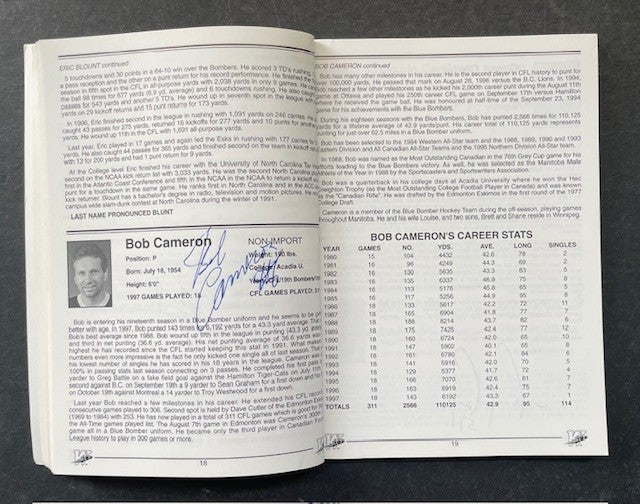 ERIC BLOUNT continued
5 touchdowns and 30 points in a 64-10 win over the Bombers. He scored 3 TD's rushing,
a pass reception and the other on a punt return for his record performance. He finished the
season in fifth spot in the CFL in all-purpose yards with 2,038 yards in only 9 games. He
the ball 98 times for 677 yards (6.9 yd. average) and 6 touchdowns rushing. He also caught
passes for 543 yards and another 5 TD's. He wound up in seventh spot in the league with
yards on 29 kickoff returns and 15 punt returns for 173 yards.
In 1996, Eric finished second in the league in rushing with 1,091 yards on 246 carries. He
caught 43 passes for 275 yards, returned 16 kickoffs for 277 yards and 10 punts for another
yards. He wound up 11th in the CFL with 1,691 all-purpose yards.
Last year, Eric played in 17 games and again led the Esks in rushing with 177 carries for
yards. He also caught 44 passes for 365 yards and finished second on the team in kickoff
with 13 for 200 yards and had 1 punt return for 9 yards.
At the College level Eric finished his career with the University of North Carolina Tar Heels
second on the NCAA kick return list with 3,033 yards. He was the second North Carolina
first in the Atlantic Coast Conference and fifth in the NCAA in the NCAA to return a kickoff
punt for a touchdown in the same game. He ranks first in North Carolina and in the ACC
kick returner. Blount has a bachelor's degree in radio, television and motion pictures. He
campus wide slam-dunk contest at North Carolina during the winter of 1991.
LAST NAME PRONOUNCED BLUNT
Bob Cameron NON-IMPORT
Position: P Weight: 190 lbs.
Born: July 18, 1954 College: Acadia U.
Height: 6'0" 19th Bombers/
1997 GAMES PLAYED: 18 CFL GAMES PLAYED: 31
Bob Cameron
Bob is entering his nineteenth season in a Blue Bomber uniform and he seems to be
better with age. In 1997, Bob punted 143 times for 6,192 yards for a 43.3 yard average.
Bob's best average since 1988. Bob wound up fifth in the league in punting (43.3 yd. aver
and third in net punting (36.6 yd. average). His net punting average of 36.6 yards was
highest he has recorded since the CFL started keeping this stat in 1991. What makes
numbers even more impressive is the fact he only kicked one single all of last season, that
his lowest number of singles he has scored in his 18 years in the league. Cameron was
100% in passing stats last season connecting on 3 passes. He completed his first pass
yarder to Greg Battle on a fake field goal against the Hamilton Tiger-Cats on July
second against B.C. on September 19th a 9 yarder to Sean Graham for a first down and his
on October 19th against Montreal a 14 yarder to Troy Westwood for a first down.
Last year Bob reached a few milestones in his career. He extended his CFL record
consecutive games played to 306. Second spot is held by Dave Cutler of the Edmonton Esks
(1969 to 1984) with 253. He has now played in a total of 311 CFL games which is good for
the All-Time games played list. The August 7th game in Edmonton was Cameron's 300th
game all in a Blue Bomber uniform. He became only the third player in Canadian Football
League history to play in 300 games or more.
18
BOB CAMERON continued
Bob has many other milestones in his career. He is the second player in CFL history to punt for
over 100,000 yards. He passed that mark on August 26, 1996 versus the B.C. Lions. In 1994,
Bob reached a few other milestones as he kicked his 2,000th career punt during the August 11th
game at Ottawa and played his 250th career CFL game on September 17th versus Hamilton
where he received the game ball. He was honoured at half-time of the September 23, 1994
game for his achievements with the Blue Bombers.
During his eighteen seasons with the Blue Bombers, Bob has punted 2,566 times for 110,125
yards for a lifetime average of 42.9 yards/punt. His career total of 110,125 yards represents
punting for just over 62.5 miles in a Blue Bomber uniform.
Bob has been selected to the 1984 Western All-Star team and to the 1988, 1989, 1990 and 1993
Eastern Division and All Canadian All-Star Teams and the 1995 Northern Division All-Star team.
In 1988, Bob was named as the Most Outstanding Canadian in the 76th Grey Cup game for his
efforts leading to the Blue Bombers victory. As well, he was selected as the Manitoba Male
Athlete of the Year in 1988 by the Sportscasters and Sportswriters Association.
Bob was a quarterback in his college days at Acadia University where he won the Hec
Creighton Trophy (as the Most Outstanding College Football Player in Canada) and was known
as the "Canadian Rifle". He was drafted by the Edmonton Eskimos in the first round of the 1977
College Draft.
Cameron is a member of the Blue Bomber Hockey Team during the off-season, playing games
throughout Manitoba. He and his wife Louise, and two sons, Brett and Shane reside in Winnipeg.
BOB CAMERON'S CAREER STATS
YEAR GAMES NO. YDS. AVE. LONG SINGLES
1980 15 104 4432 42.6 78 2
1981 16 96 4249 44.3 69 2
1982 16 130 5635 43.3 83 5
1983 16 135 6337 46.9 75 8
1984 16 113 5176 45.8 65 5
1985 16 117 5256 44.9 95 8
1986 18 133 5617 42.2 72 11
1987 18 165 6904 41.8 77 7
1988 18 188 8214 43.7 82 6
1989 18 175 7425 42.4 77 12
1990 18 160 6724 42.0 65 10
1991 18 147 5902 40.1 65 4
1992 18 161 6780 42.1 84 6
1993 18 141 5916 42.0 70 5
1994 18 129 5377 41.7 72 4
1995 18 166 7070 42.6 81 7
1996 18 163 6919 42.4 75 7
1997 18 143 6192 43.3 67 1
TOTALS 311 2566 110125 42.9 95 114
19